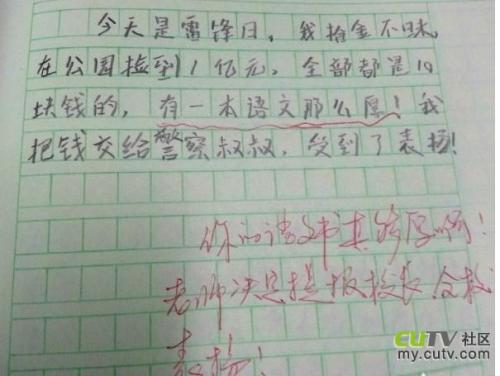 今天是雷锋日，我拾金不昧，
在公园捡到1亿元，全部都是10
块钱的，有一本语文那么愿！我
把钱交给警察叔叔，受到了表扬！
你的语文书真够厚啊！
老师决定提报校长全校
表扬！
CUTV 社区
my.cutv.com